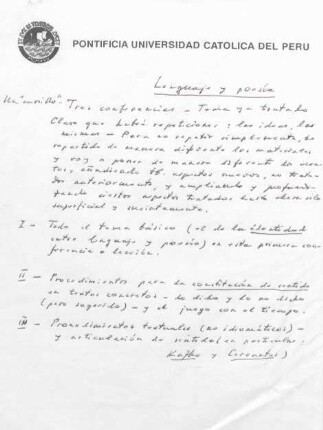 PONTIFICIA UNIVERSIDAD CATOLICA DEL PERU
Lenguaje y poesía
Un "cursillo". Tres conferencias - Tema ya tratado
Claro que habrá repeticiones: las ideas, las
mismas - Para no repetir simplemente, he
repartido de manera diferente los materiales
y voy a poner de manera diferente de
añadiendo tb. aspectos nuevos, no trata-
dos anteriormente, y ampliando y profundi-
zando ciertos aspectos tratados hasta ahora sólo
superficial y sucintamente.
I - Todo el tema básico (el de la identidad
entre lenguaje y poesía) en esta primera con-
ferencia o lección.
II - Procedimientos para la constitución de sentido
en textos concretos - lo dicho y lo no dicho
(pero sugerido) - y el juego con el tiempo.
III - Procedimientos textuales (no idiomáticos) -
y articulación de sentido (en particular:
Kafka y Cervantes)